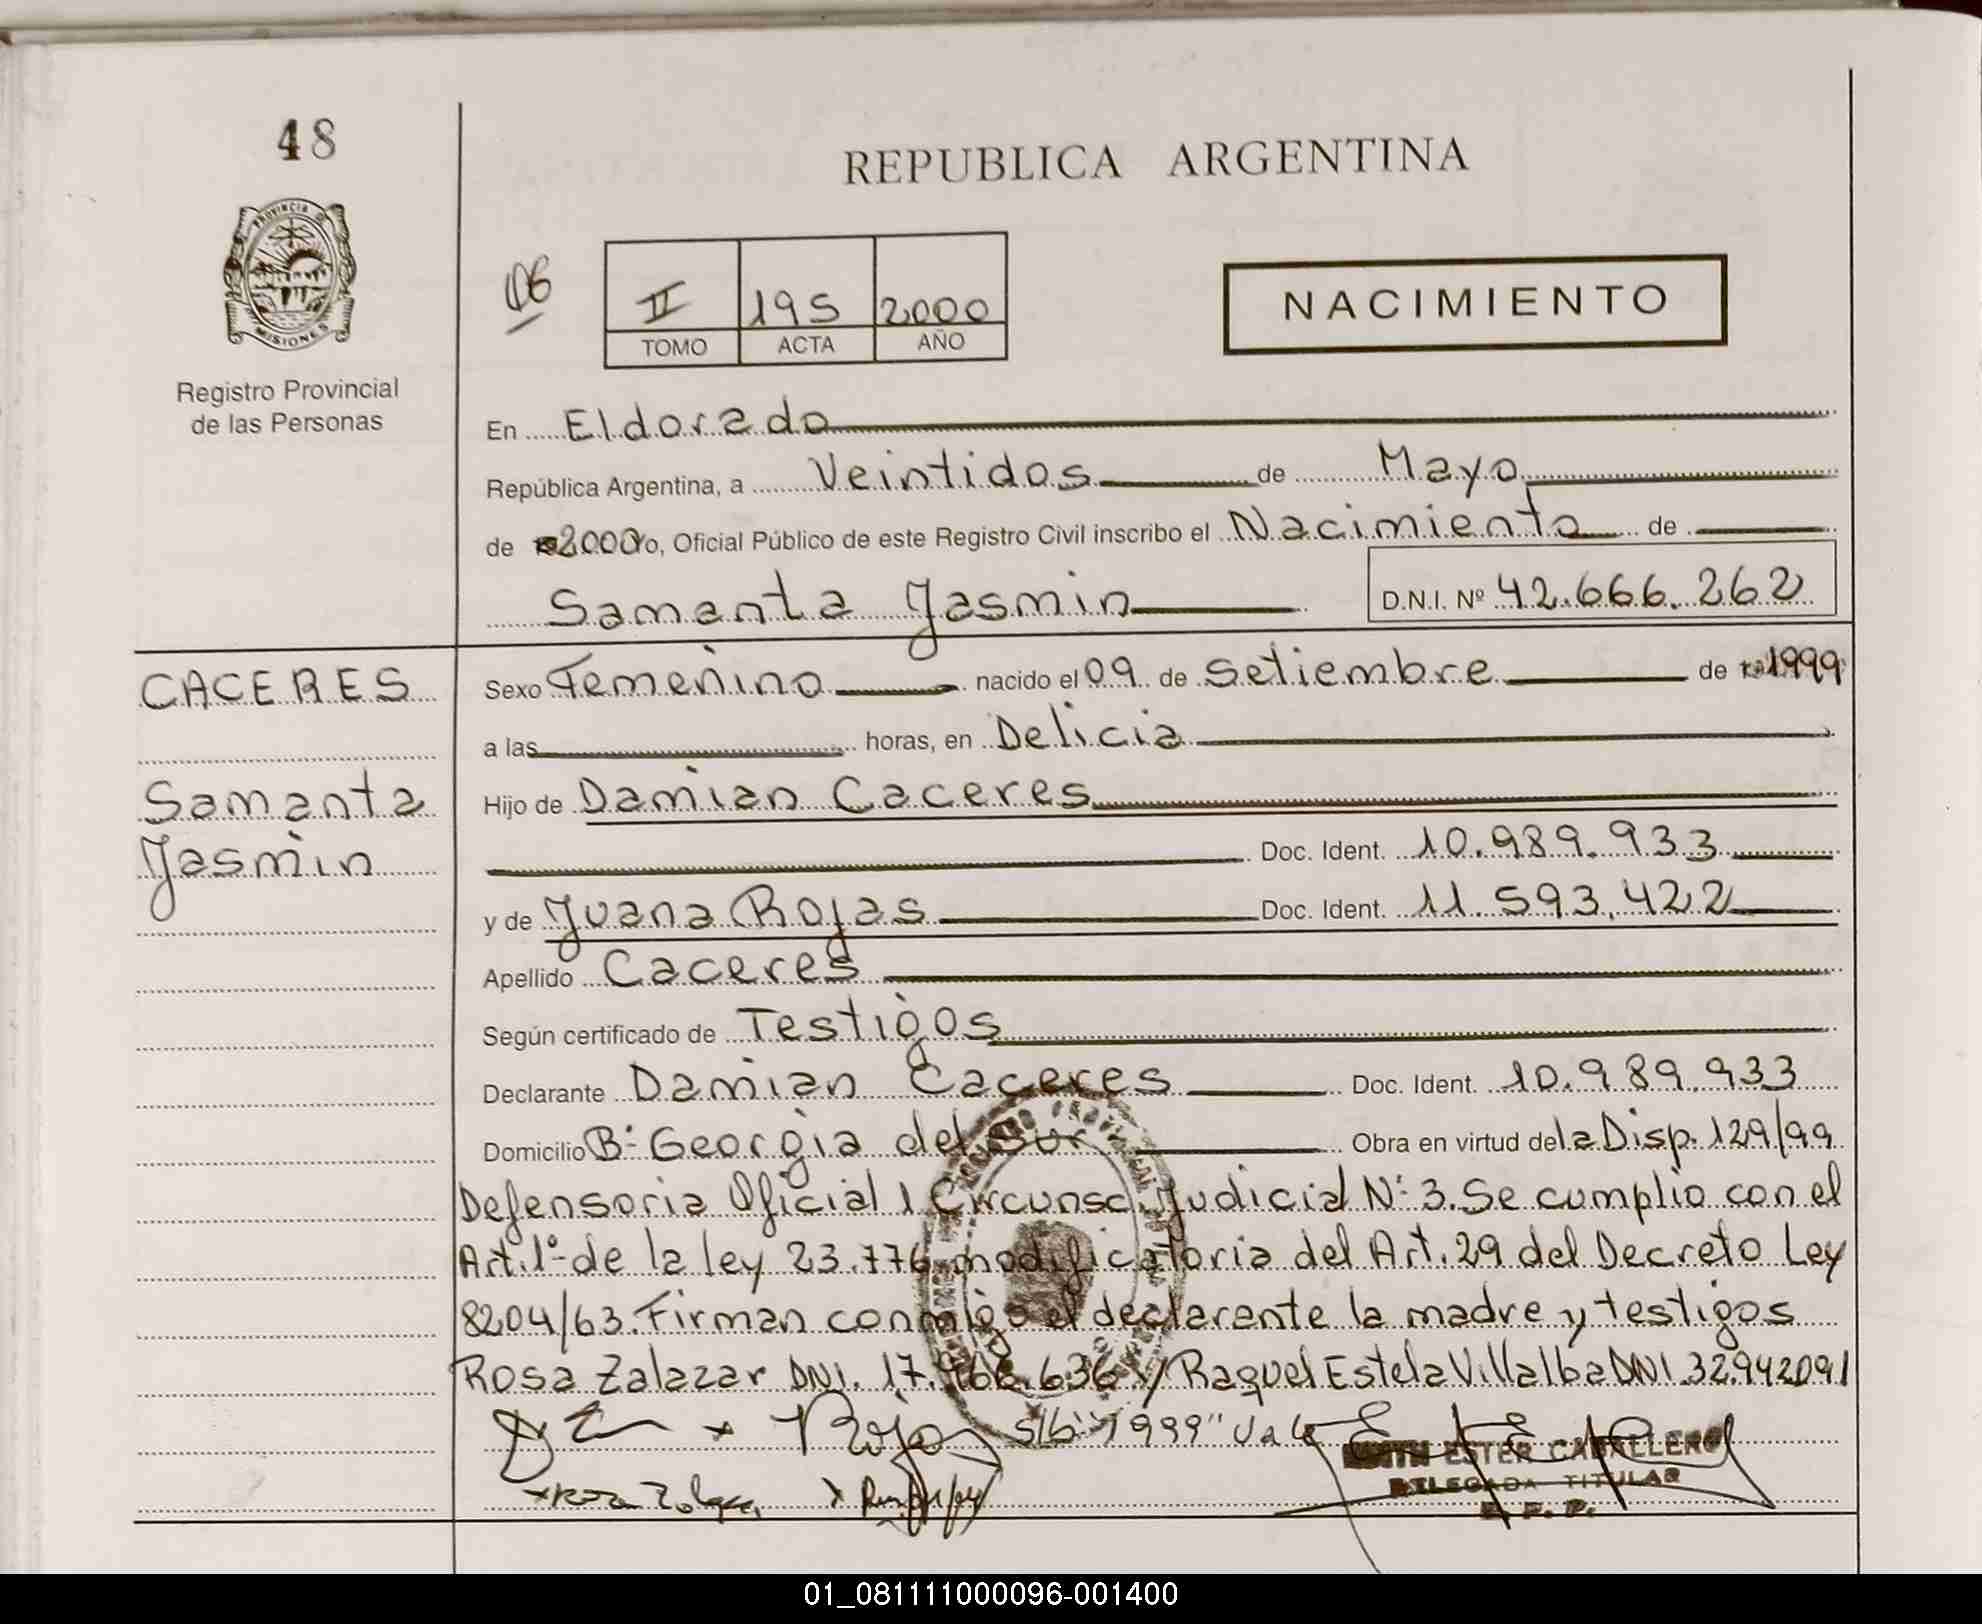 48
REPUBLICA ARGENTINA
PROVINCIA DE
MISIONES
Registro Provincial
de las Personas
06
II 195 2000
TOMO ACTA AÑO
NACIMIENTO
En Eldorado
República Argentina, a Veintidos de Mayo
de 2000 yo, Oficial Público de este Registro Civil inscribo el Nacimiento de
Samanta Jasmin D.N.I. Nº 42.666.262
CACERES
Samanta
Jasmin
Sexo Femenino nacido el 09 de Setiembre de 1999
a las horas, en Delicia
Hijo de Damian Caceres
Doc. Ident. 10.989.933
y de Juana Rojas Doc. Ident. 11.593.422
Apellido Caceres
Según certificado de Testigos
Declarante Damian Caceres Doc. Ident. 10.989.933
Domicilio Bº Georgia del Sur Obra en virtud de la Disp. 129/99
Defensoria Oficial 1 Circunsc. Judicial Nº 3. Se cumplio con el
Art. 1º de la ley 23.776 modificatoria del Art. 29 del Decreto Ley
8204/63. Firman conmigo el declarante la madre y testigos
Rosa Zalazar DNI. 17.966.636 y Raquel Estela Villalba DNI. 32.942091
x Rojas S/b "1999" Vale
EDITH ESTER CABALLERO
DELEGADA TITULAR
R. P. P.
01_081111000096-001400